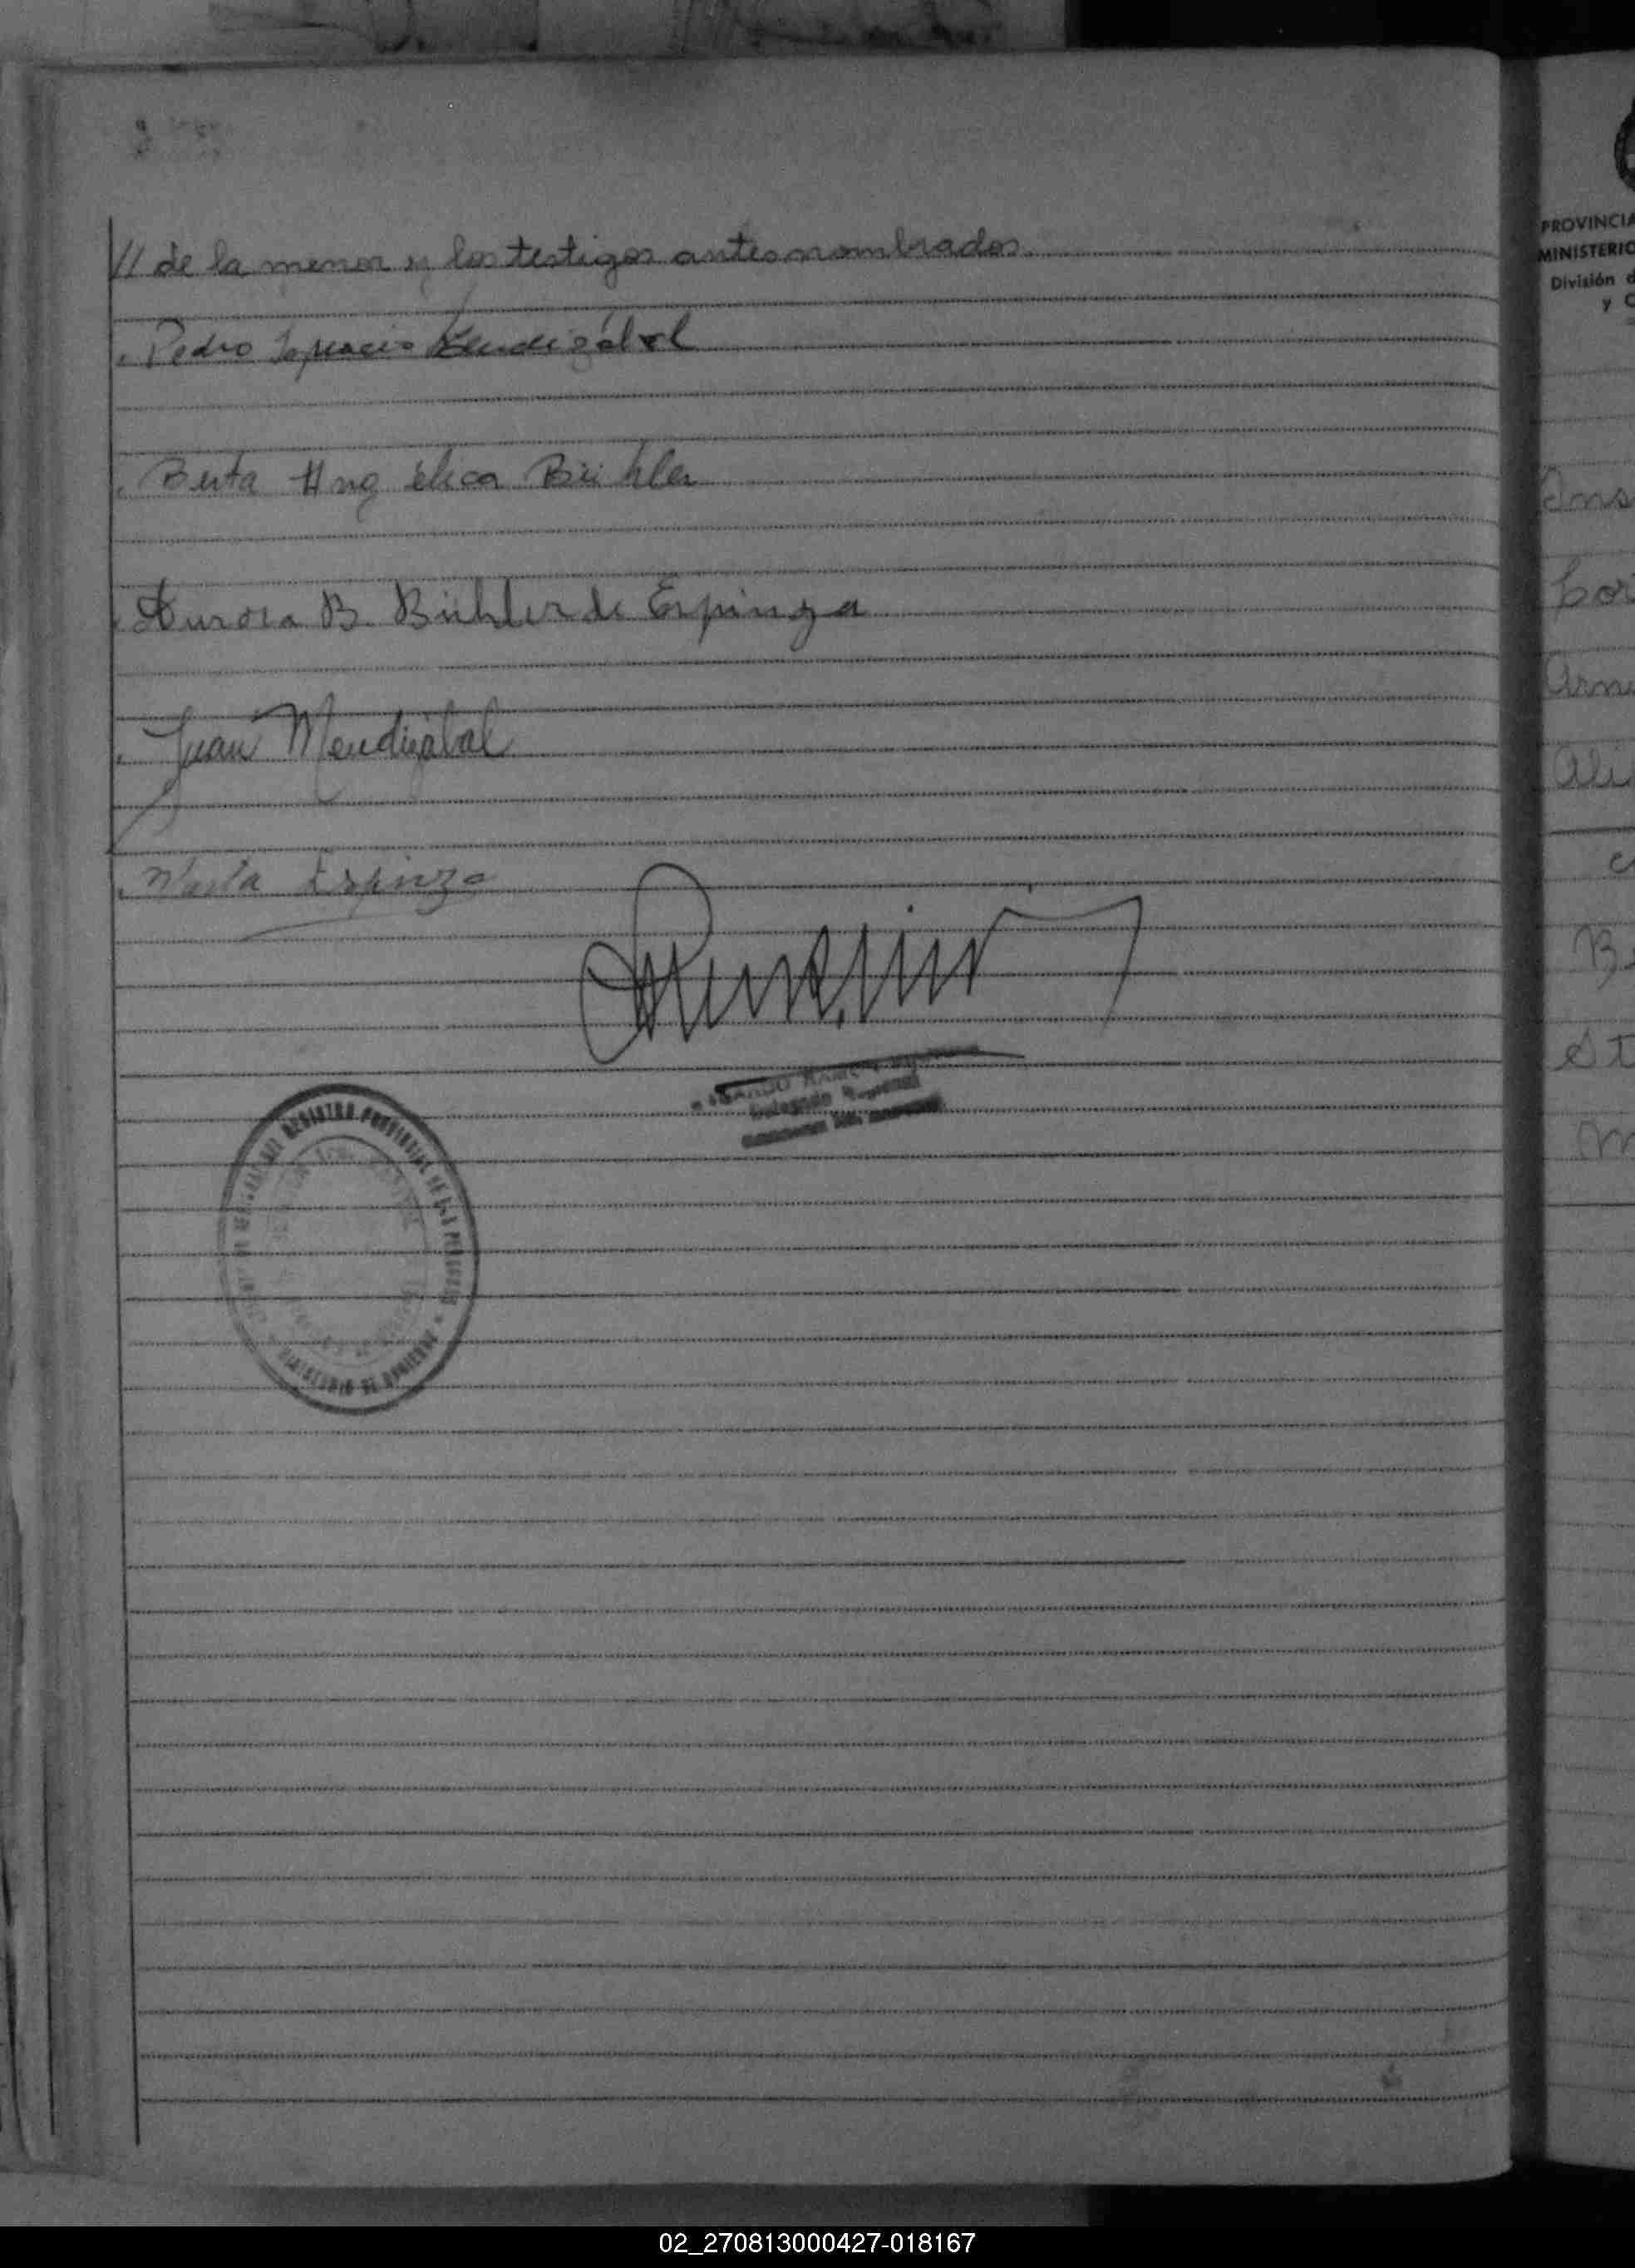 // de la menor y los testigos antesnombrados.
Pedro Ignacio Mendizábal
Berta Angélica Bühler
Aurora B. Bühler de Espinza
Juan Mendizabal
María Espinza
Delegado Regional
REGISTRO PROVINCIAL DE LAS PERSONAS
MINISTERIO DE GOBIERNO
PROVINCIA
MINISTERIO
División d
y C
Ans
Cor
Arm
Ali
B
St
M
02_270813000427-018167